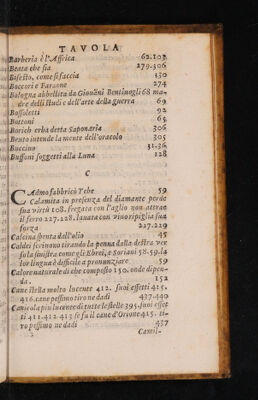 TAVOLA
Barberia è l'Affrica 62.103
Beata che sia 279.306
Bisesto, come si faccia 130
Boccori e Faraone 274
Bologna abbellita da Giouãni Bentiuogli 68 ma
dre delli studi e dell'arte della guerra 69
Bossoletti 92
Bottoni 65
Borich erba detta Saponaria 306
Bruto intende la mente dell'oracolo 305
Buccina 31.36
Buffoni soggetti alla Luna 128
C
CAdmo fabbricò Tebe 59
Calamita in presenza del diamante perde
sua virtù 108. fregata con l'aglio non attrae
il ferro 227.128. lauata con vino ripiglia sua
forza 227.229
Calcina spenta dall'olio 45
Caldei scriuono tirando la penna dalla destra ver
so la sinistra come gli Ebrei, e Soriani 58.59. la
lor lingua è difficile a pronunziare 59
Calore naturale di che composto 150. onde dipen-
da. 152
Cane stella molto lucente 412. suoi effetti 415.
416. cane pessimo tiro ne dadi 437.440
Canicola piu lucente di tutte le stelle 395. suoi effet
ti 411.412.413 se fu il cane d'Orione 415. ti-
ro pessimo ne dadi 437
Camil-